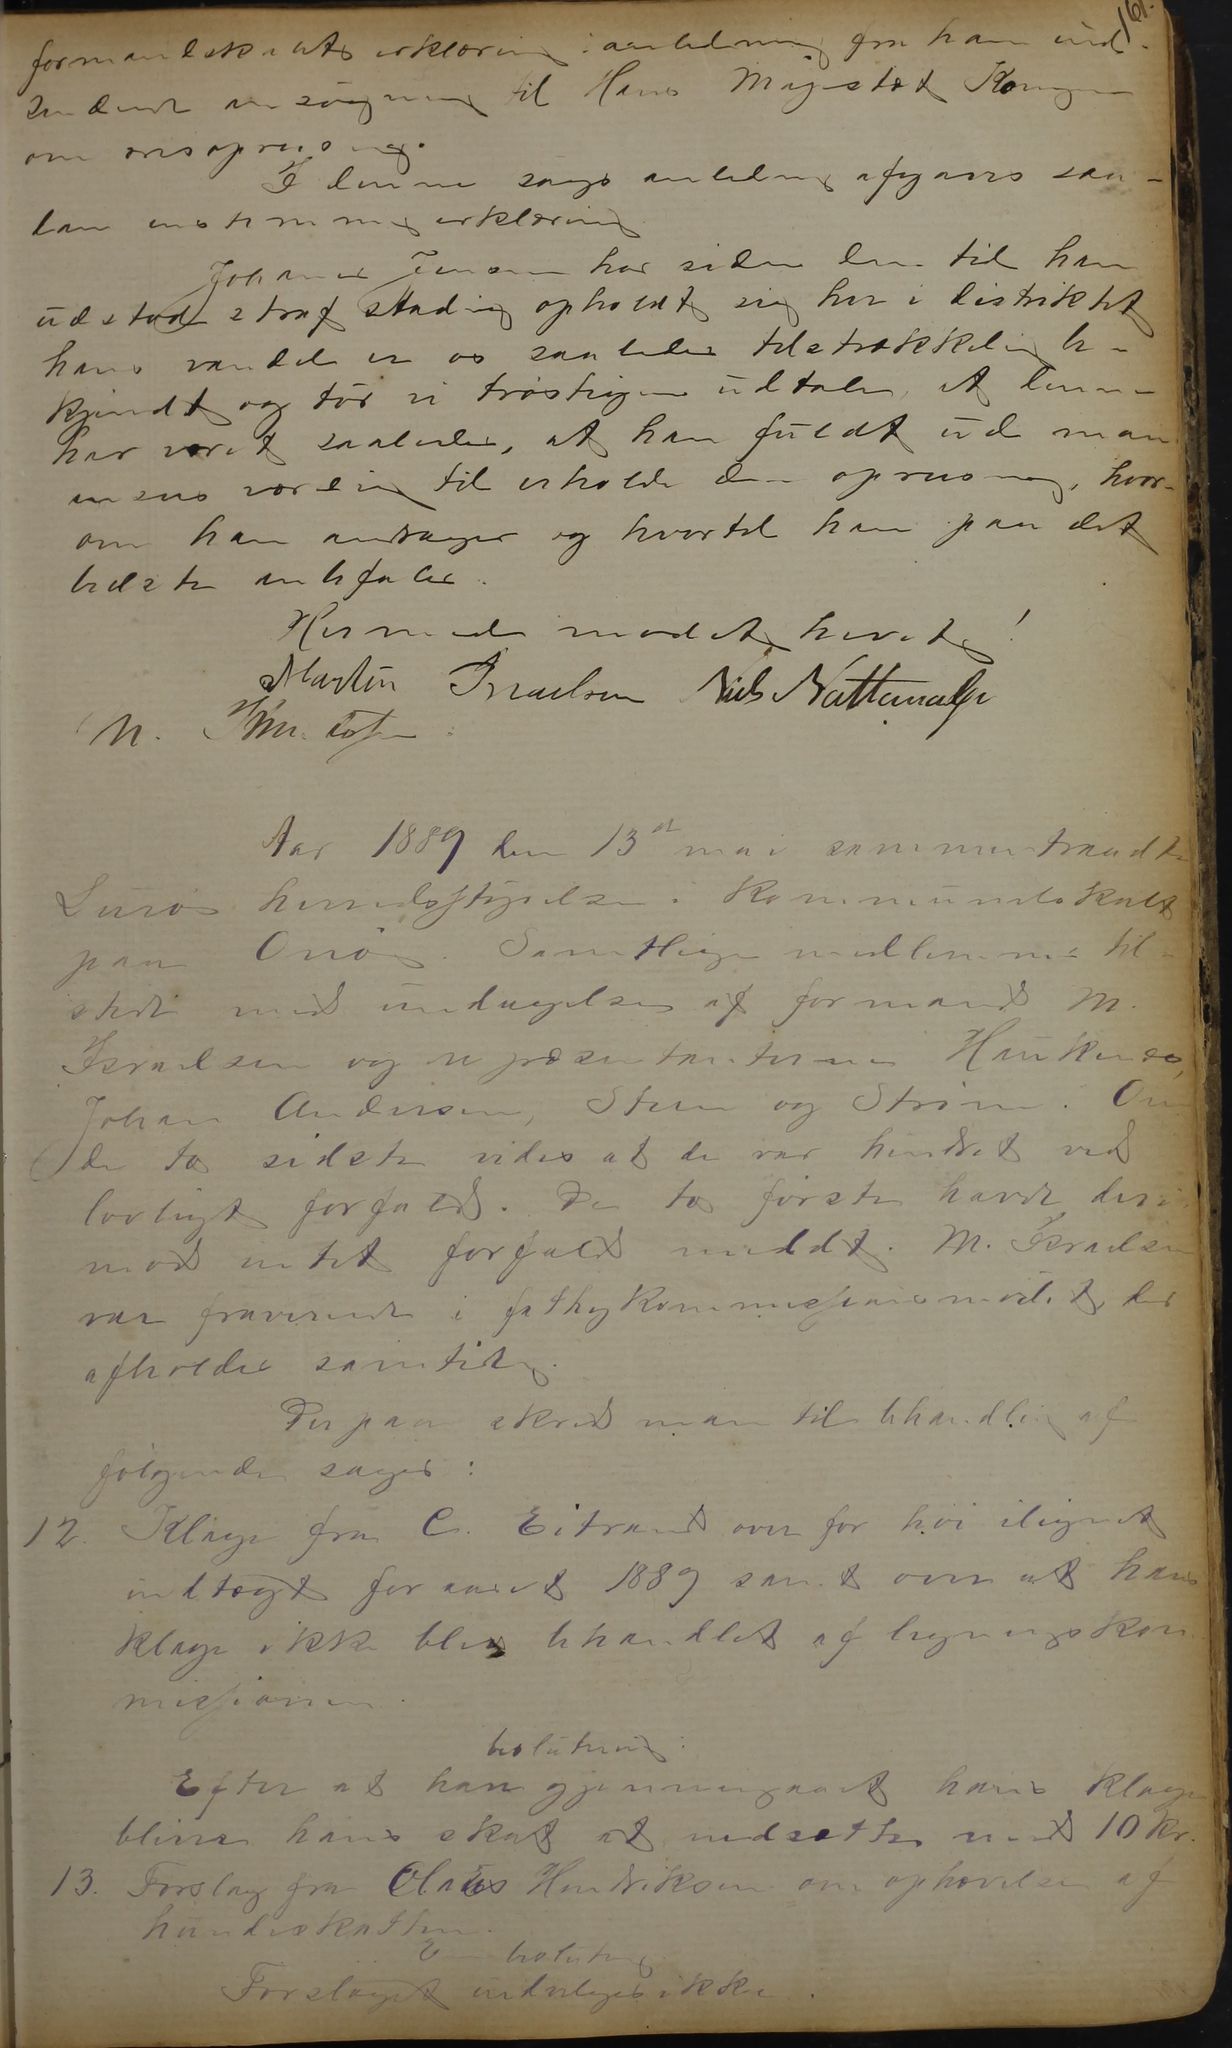 161.
formandskabets erklæring i anledning fra ham ind-
sendende ansøgning til Hans Majestæt Kongen
om æresopreisning.
I denne sags anledning afgaves saa-
dan enstemmig erklæring
Johannes Jensen har siden den til ham
udstod straf stadig opholdt sig her i distriktet
hans vandel er os saaledes tilstrækkelig be-
kjendt og tør vi trøstigen udtale, at denne
har været saaledes, at han fuldt ud maa
ansees værdig til erholde den opreisning, hvor-
om han andrager og hvortil han paa det
bedste anbefales.
Hermed mødet hævet!
Martin Israelsen Niels Nattemalje
N.
Aar 1889 den 13de mai sammentraadte
Lurø herredsstyrelse i kommunelokalet
paa Onø. Samtlige medlemmer til-
stede med undtagelse af formand M.
Israelsen og repræsentanterne Haukenes,
Johan Andersen, Steen og Strøm. Om
de to sidste vides at de var hindret ved
lovligt forfald. De to første havde der-
mod intet forfald meldt. M. Israelsen
var fraværende i fattigkommissionsmødet, der
afholdes samtidig.
Derpaa skred man til behandling af
følgende sager:
12. Klage fra C. Eitrand over for høi ilignet
indtægt for aaret 1889 samt over at hans
klage ikke blev behandlet af ligningskom
missionen.
beslutning:
Efter at have gjennemgaaet hans klage
bliver hans skat at nedsætte med 10 kr.
13. Forslag fra Claus Hendriksen om ophævelse af
hundeskatten.
Enst. beslutning
Forslaget indvilges ikke.